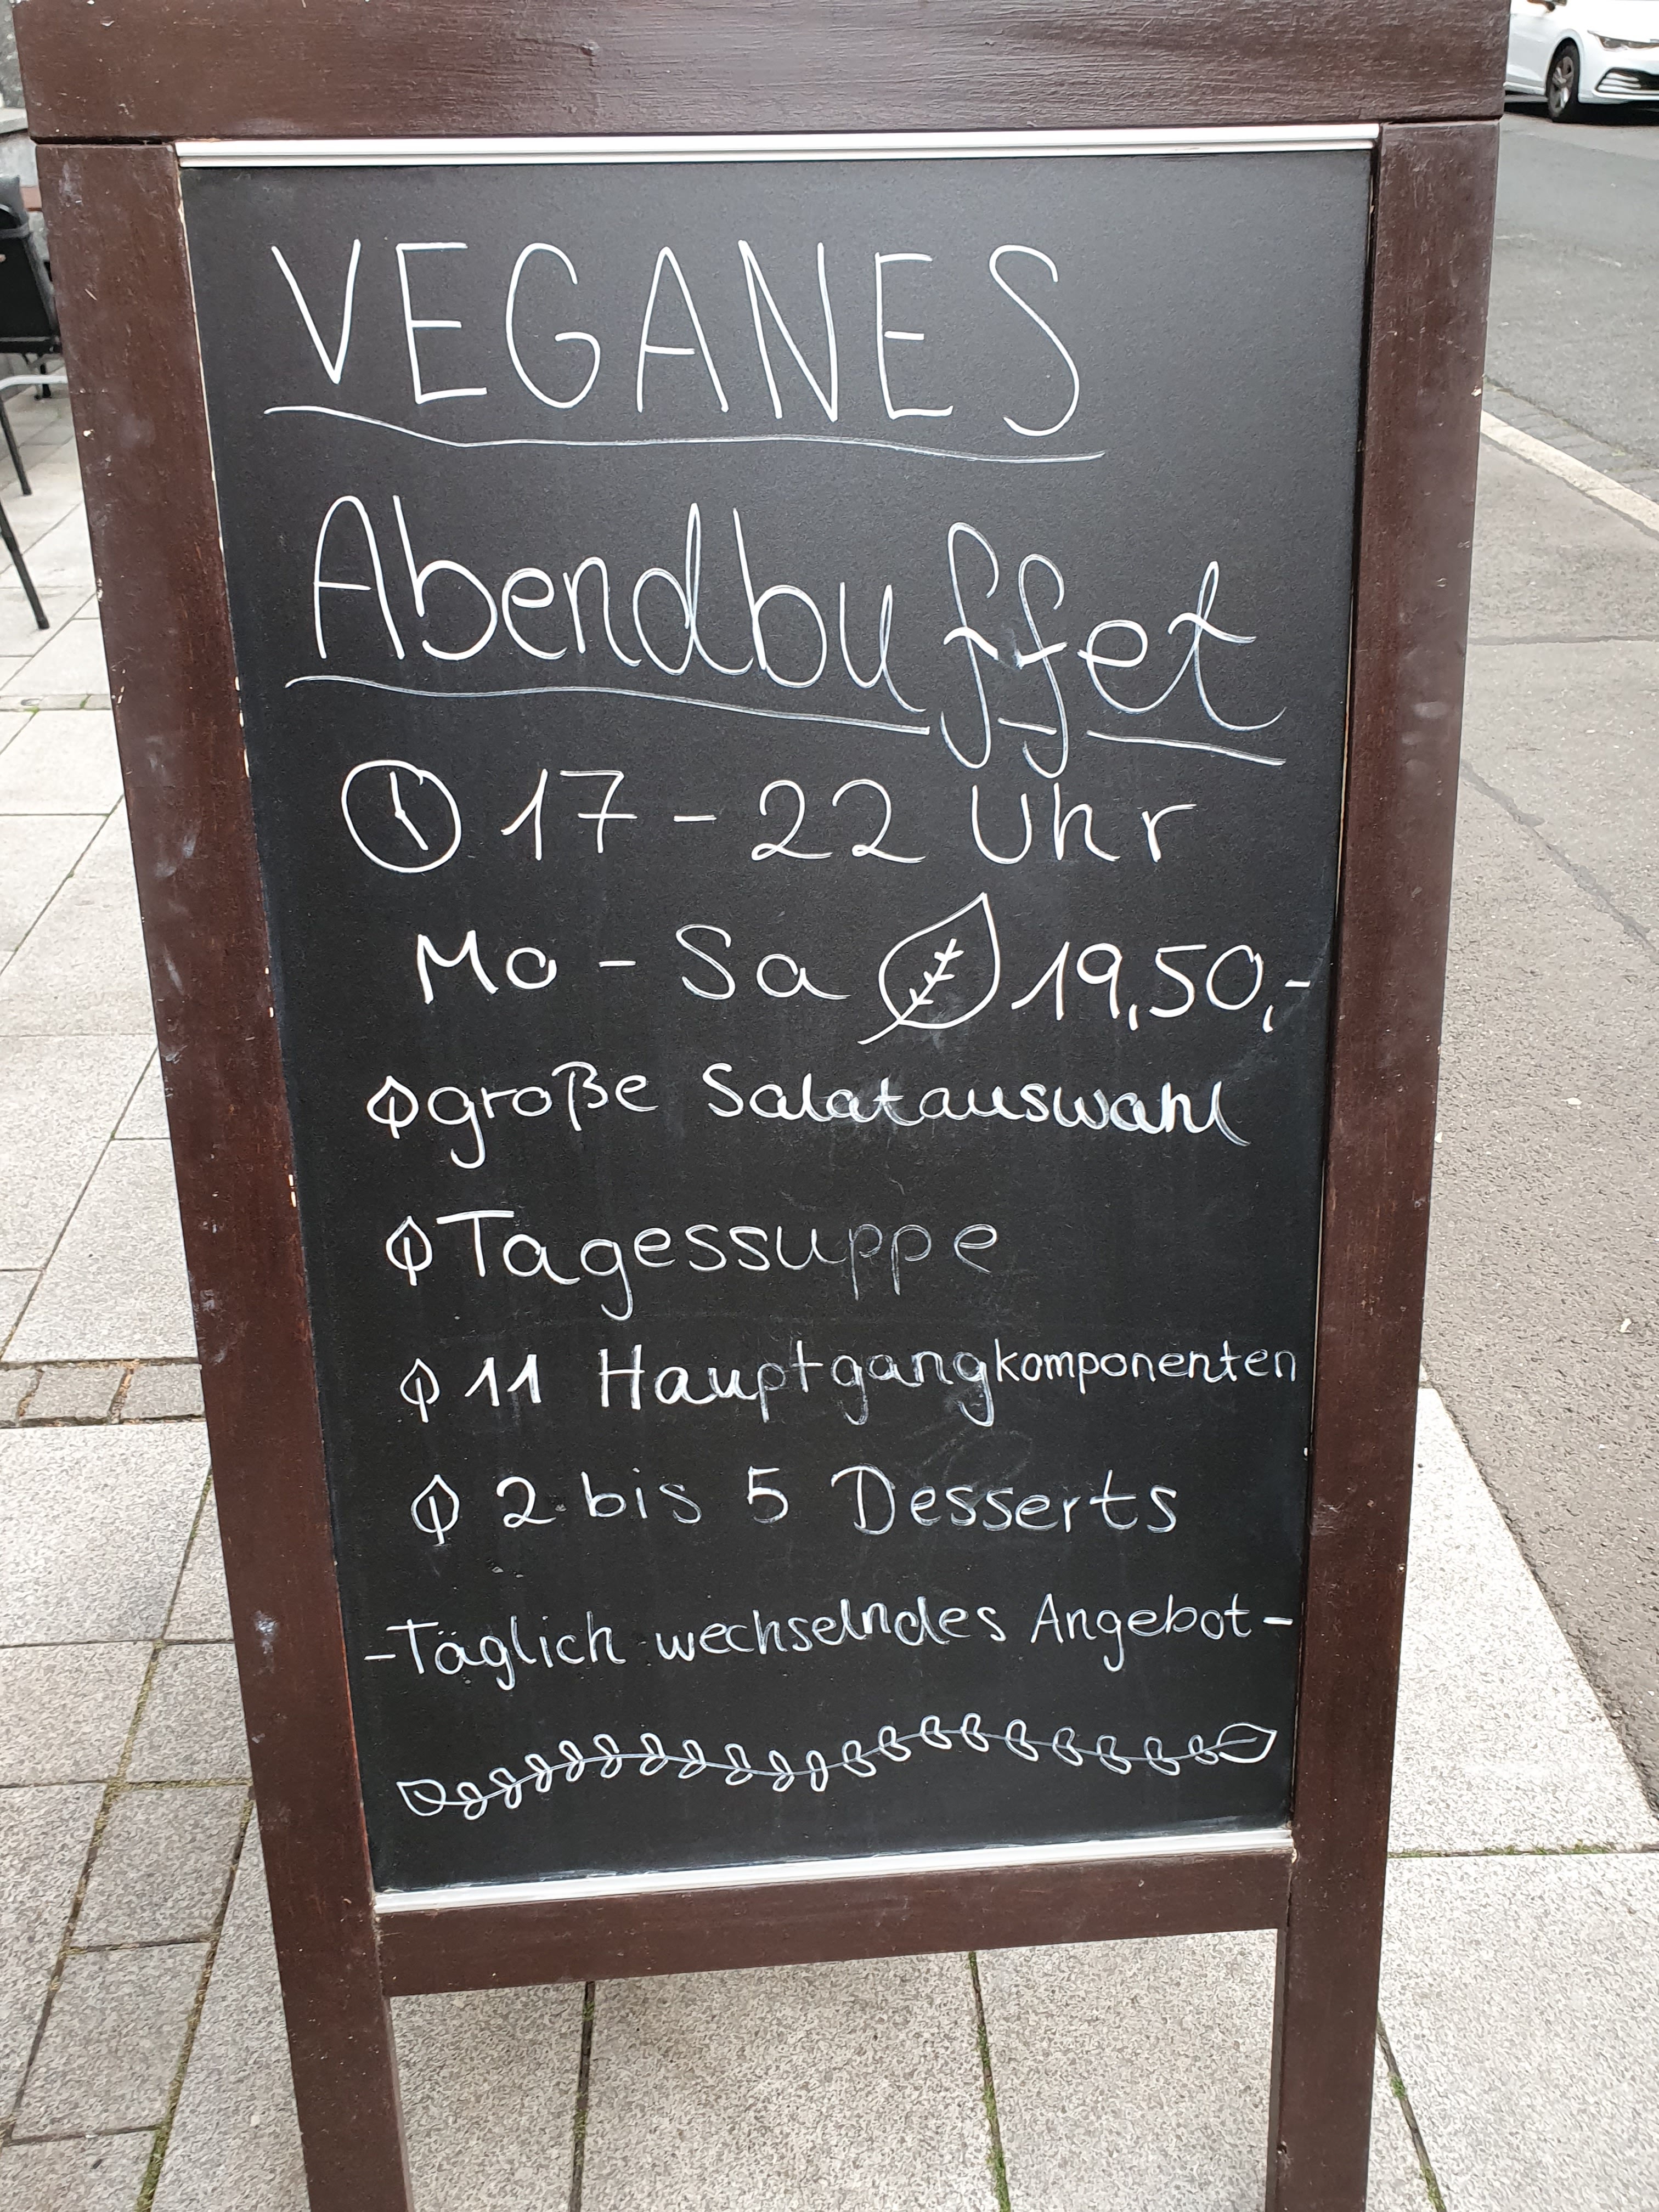 VEGANES
Abendbuffet
17 - 22 Uhr
Mo - Sa 19,50,-
große Salatauswahl
Tagessuppe
11 Hauptgangkomponenten
2 bis 5 Desserts
- Täglich wechselndes Angebot -